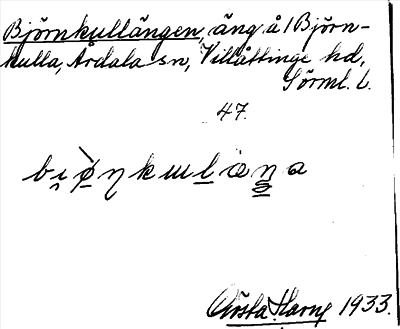 Björnkullängen, äng å 1 Björn-
kulla, Årdala sn, Villåttinge hd,
Sörml. l.
47.
Gösta Harng 1933.